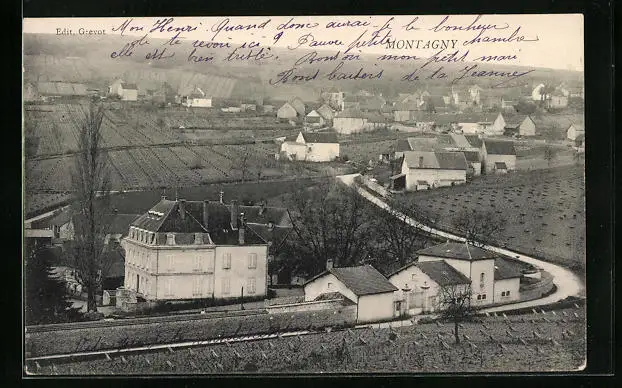 Edit. Grevot
MONTAGNY
Mon Henri. Quand donc aurai-je le bonheur
de te revoir ici ? Pauvre petite chambre
elle est bien triste. Bonsoir mon petit mari
Bons baisers de ta Jeanne